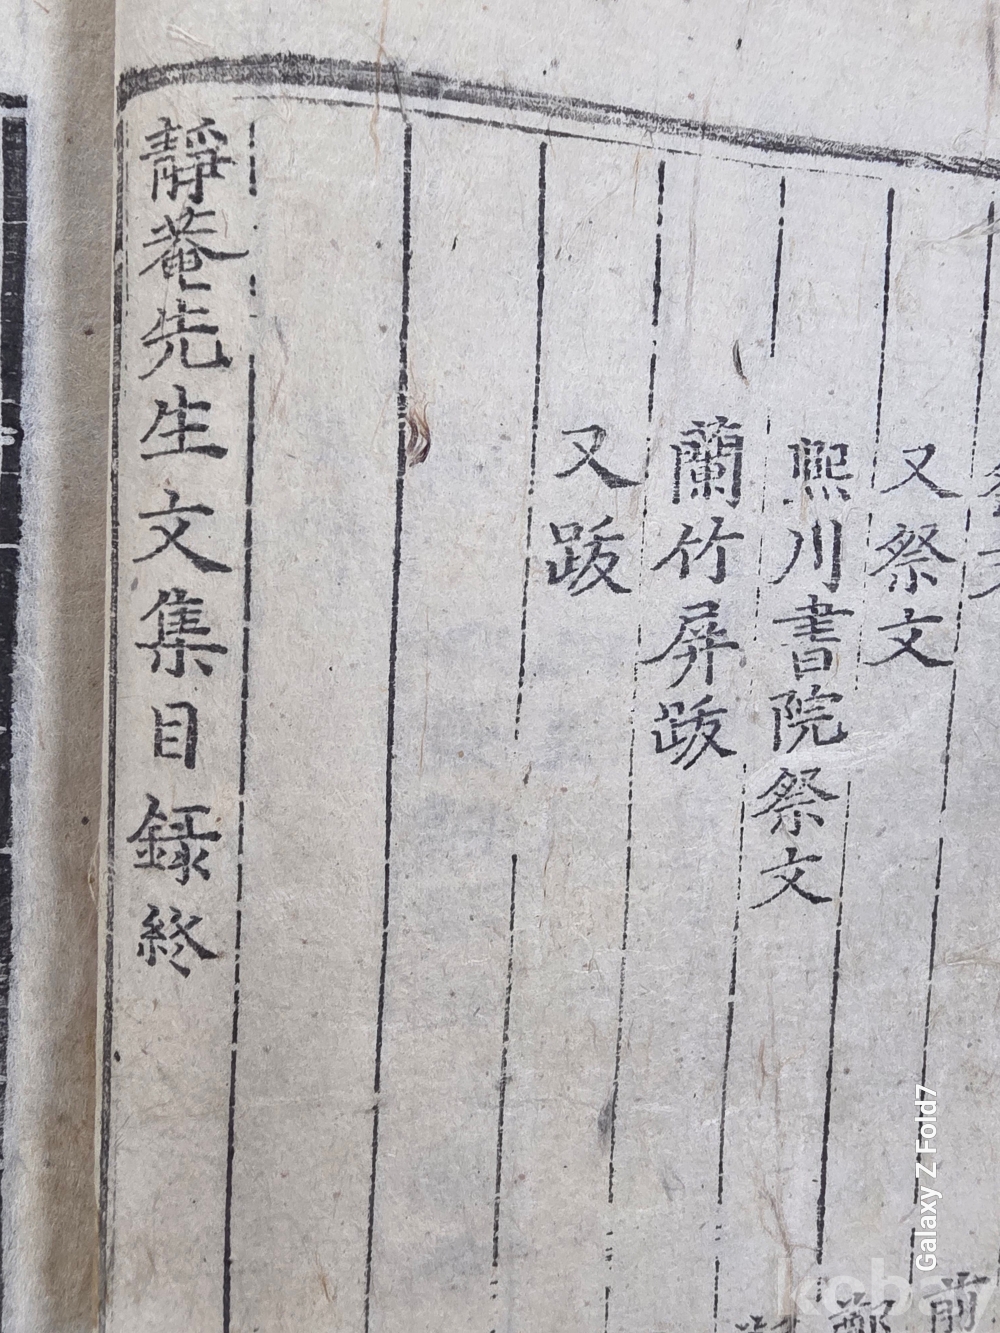 祭文
又祭文
熙川書院祭文
蘭竹屛跋
又跋
靜菴先生文集目録終
前
鄭
Galaxy Z Fold7
kobay